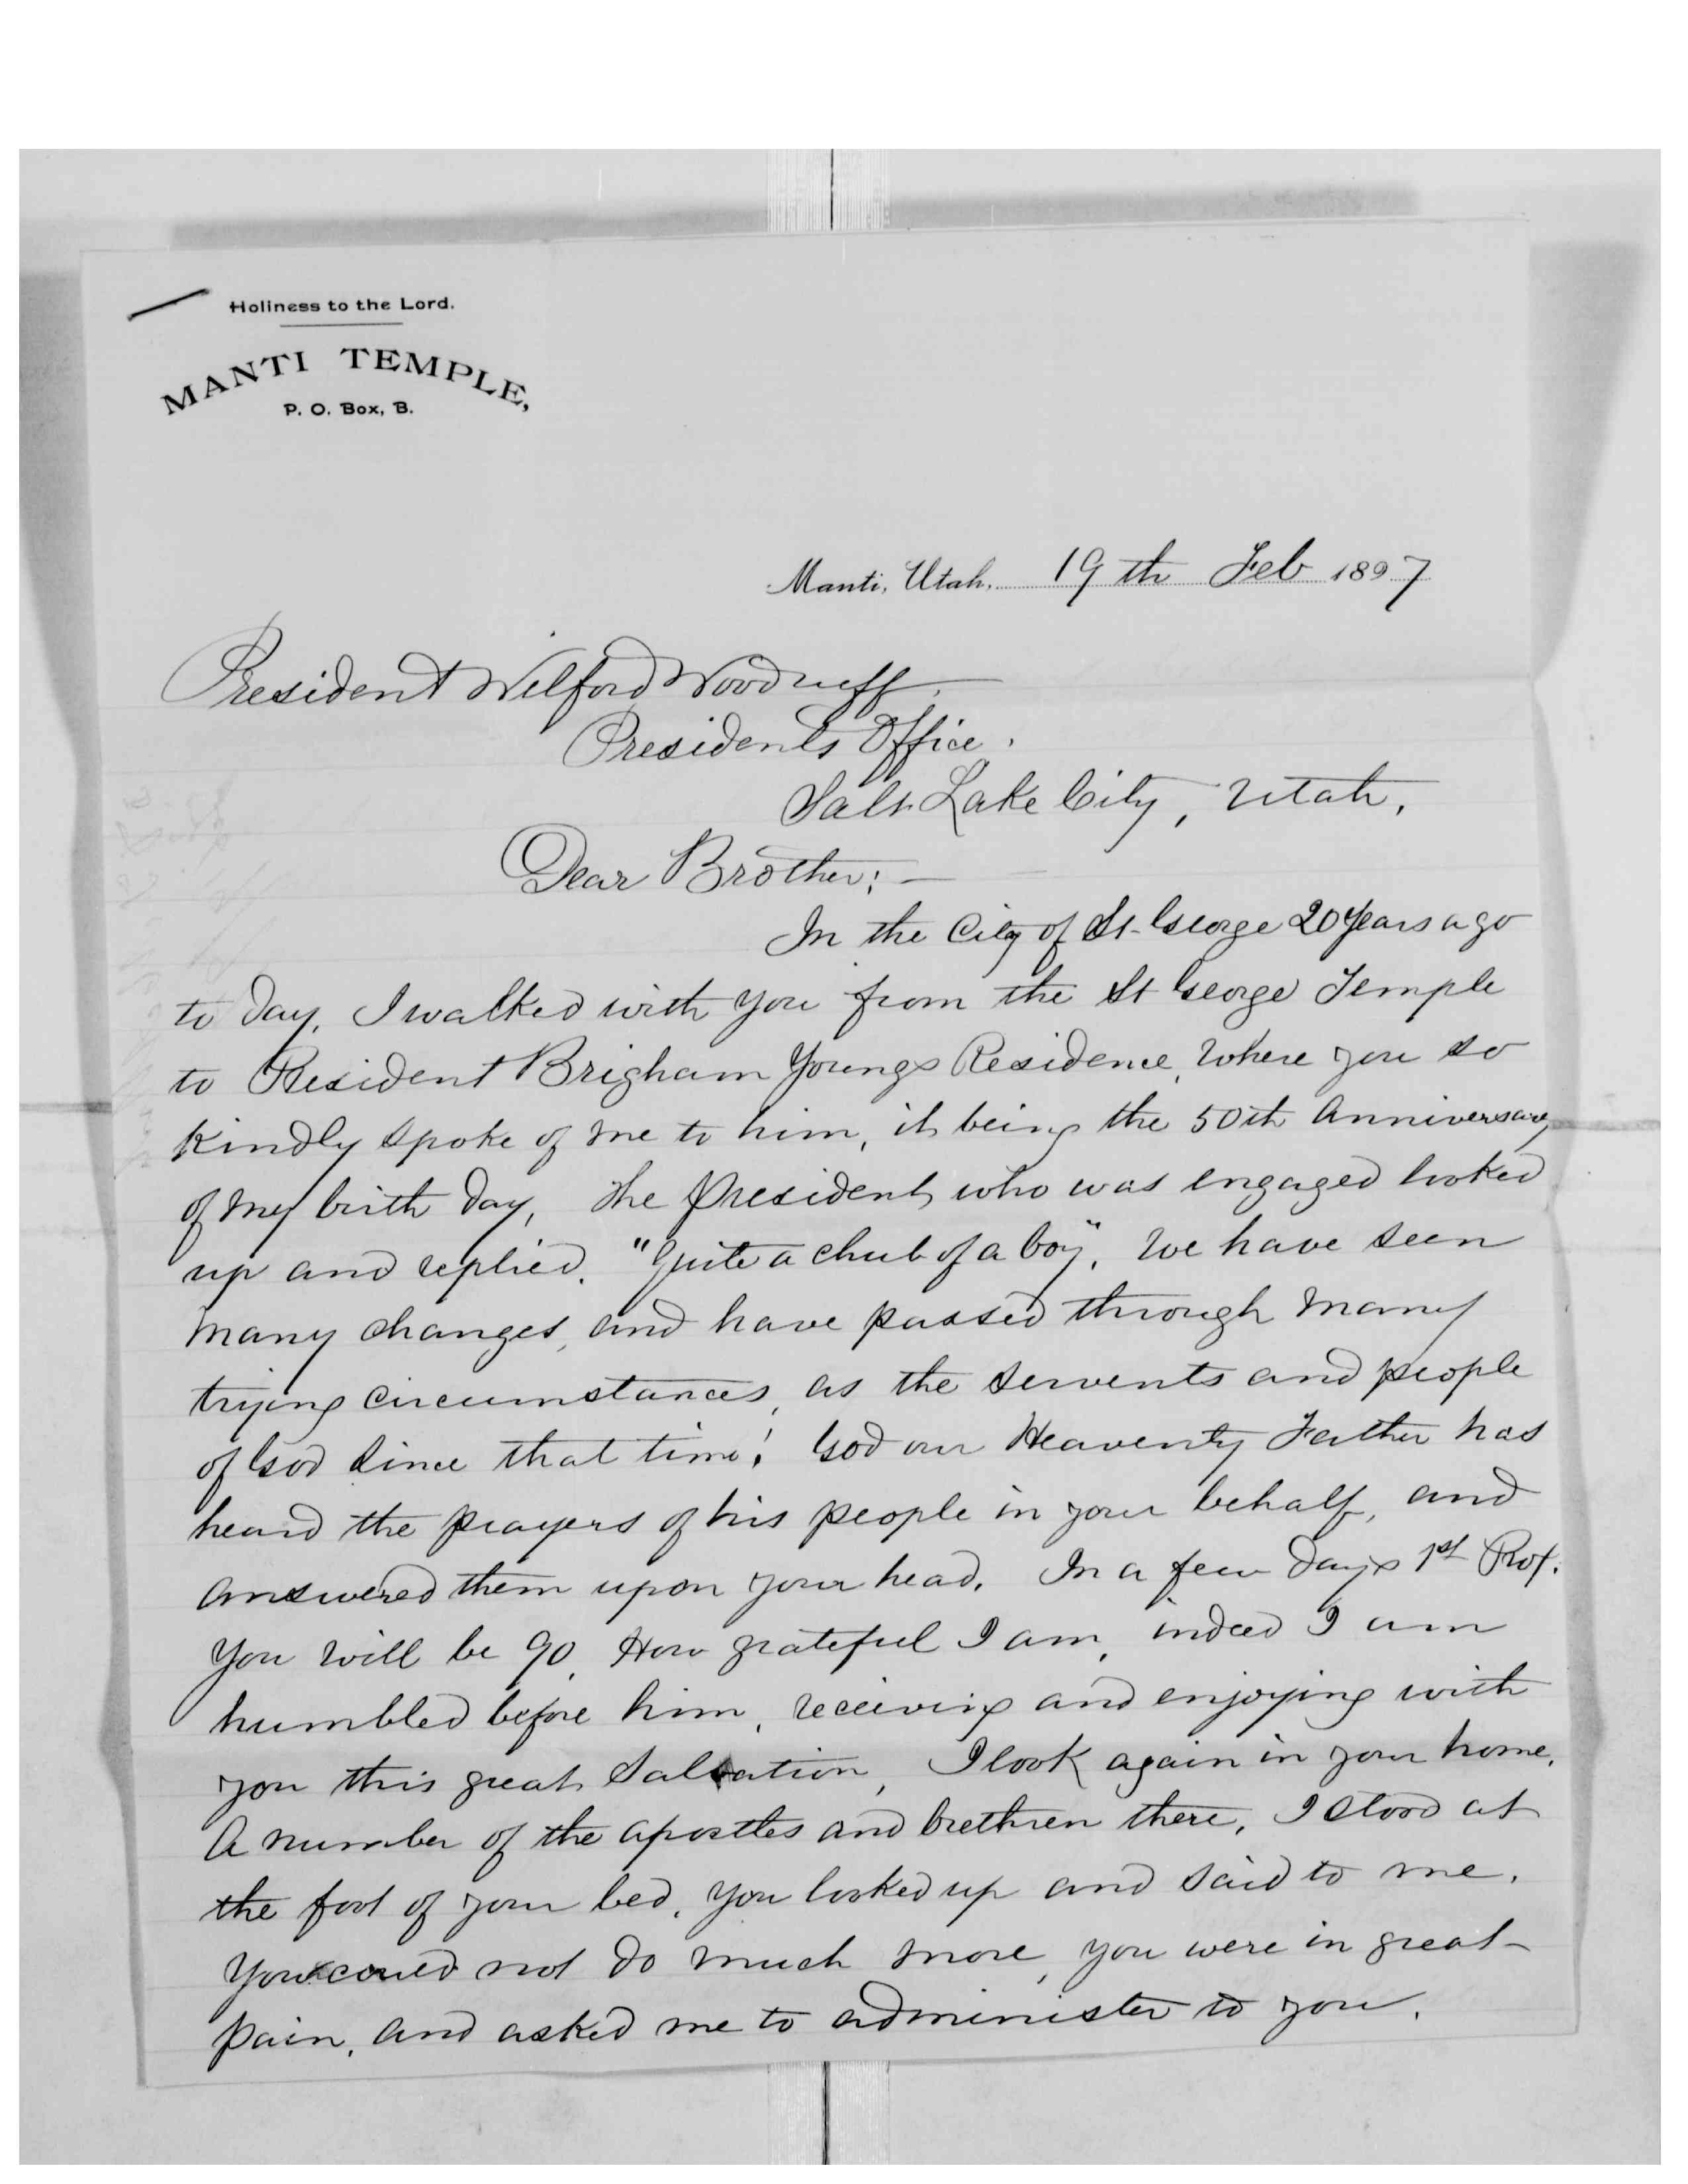 Holiness to the Lord.
MANTI TEMPLE,
P. O. Box, B.
Manti, Utah. 19th Feb 1897
President Wilford Woodruff.
Presidents Office.
Salt Lake City, Utah,
Dear Brother; —
In the City of St. George 20 Years ago
to day, I walked with you from the St George Temple
to President Brigham Youngs Residence, Where you so
kindly spoke of me to him, it being the 50th Anniversary
of my birth day, The President, who was engaged looked
up and replied. "Quite a chub of a boy", We have seen
many changes, and have passed through many
trying circumstances, as the servents and people
of God since that time! God our Heavenly Father has
heard the prayers of his people in your behalf, and
answered them upon your head. In a few days 1st Prox.
you will be 90, How grateful I am, indeed I am
humbled before him, receiving and enjoying with
you this great Salvation, I look again in your home,
A number of the apostles and brethren there, I stood at
the foot of your bed, you looked up and said to me,
you could not do much more, you were in great
pain, and asked me to administer to you.